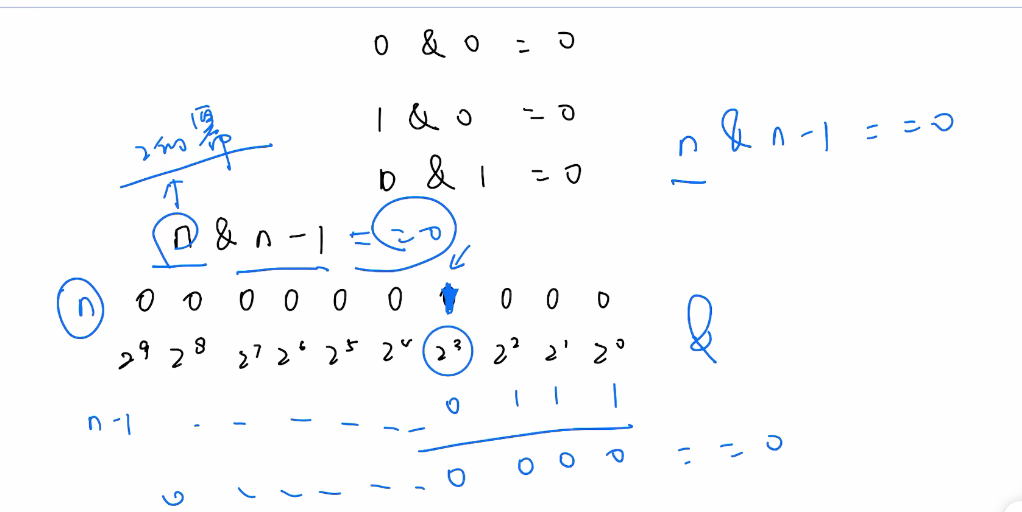 0 & 0 = 0
1 & 0 = 0
n & n-1 == 0
2的幂
0 & 1 = 0
n & n-1 = == 0
n 0 0 0 0 0 0 1 0 0 0
2⁹ 2⁸ 2⁷ 2⁶ 2⁵ 2⁴ 2³ 2² 2¹ 2⁰ &
n-1 0 1 1 1
0 0 0 0 0 == 0